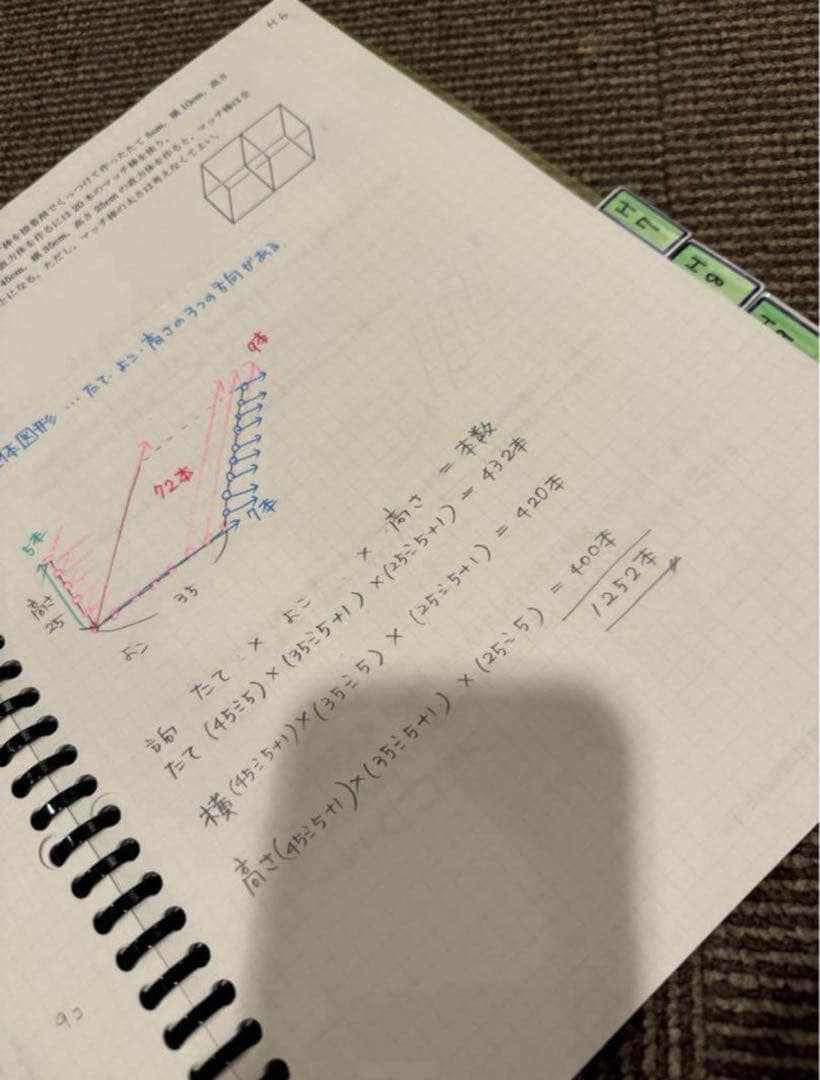 H6
棒を接着剤でくっつけて作ったたて 5cm、横 10cm、高さ
直方体を作るには 20 本のマッチ棒を使う。
45cm、横 35cm、高さ 25cm の直方体を作ると、マッチ棒は全
とになる。ただし、マッチ棒の太さは考えなくてよい。
H7
H8
体図形 … たて、よこ、高さの3つの方向がある。
9本
72本
7本
5本
高さ
25
35
よこ
たて × よこ × 高さ = 本数
たて (45÷5) × (35÷5+1) × (25÷5+1) = 432本
横 (45÷5+1) × (35÷5) × (25÷5+1) = 420本
高さ (45÷5+1) × (35÷5+1) × (25÷5) = 400本
1252本